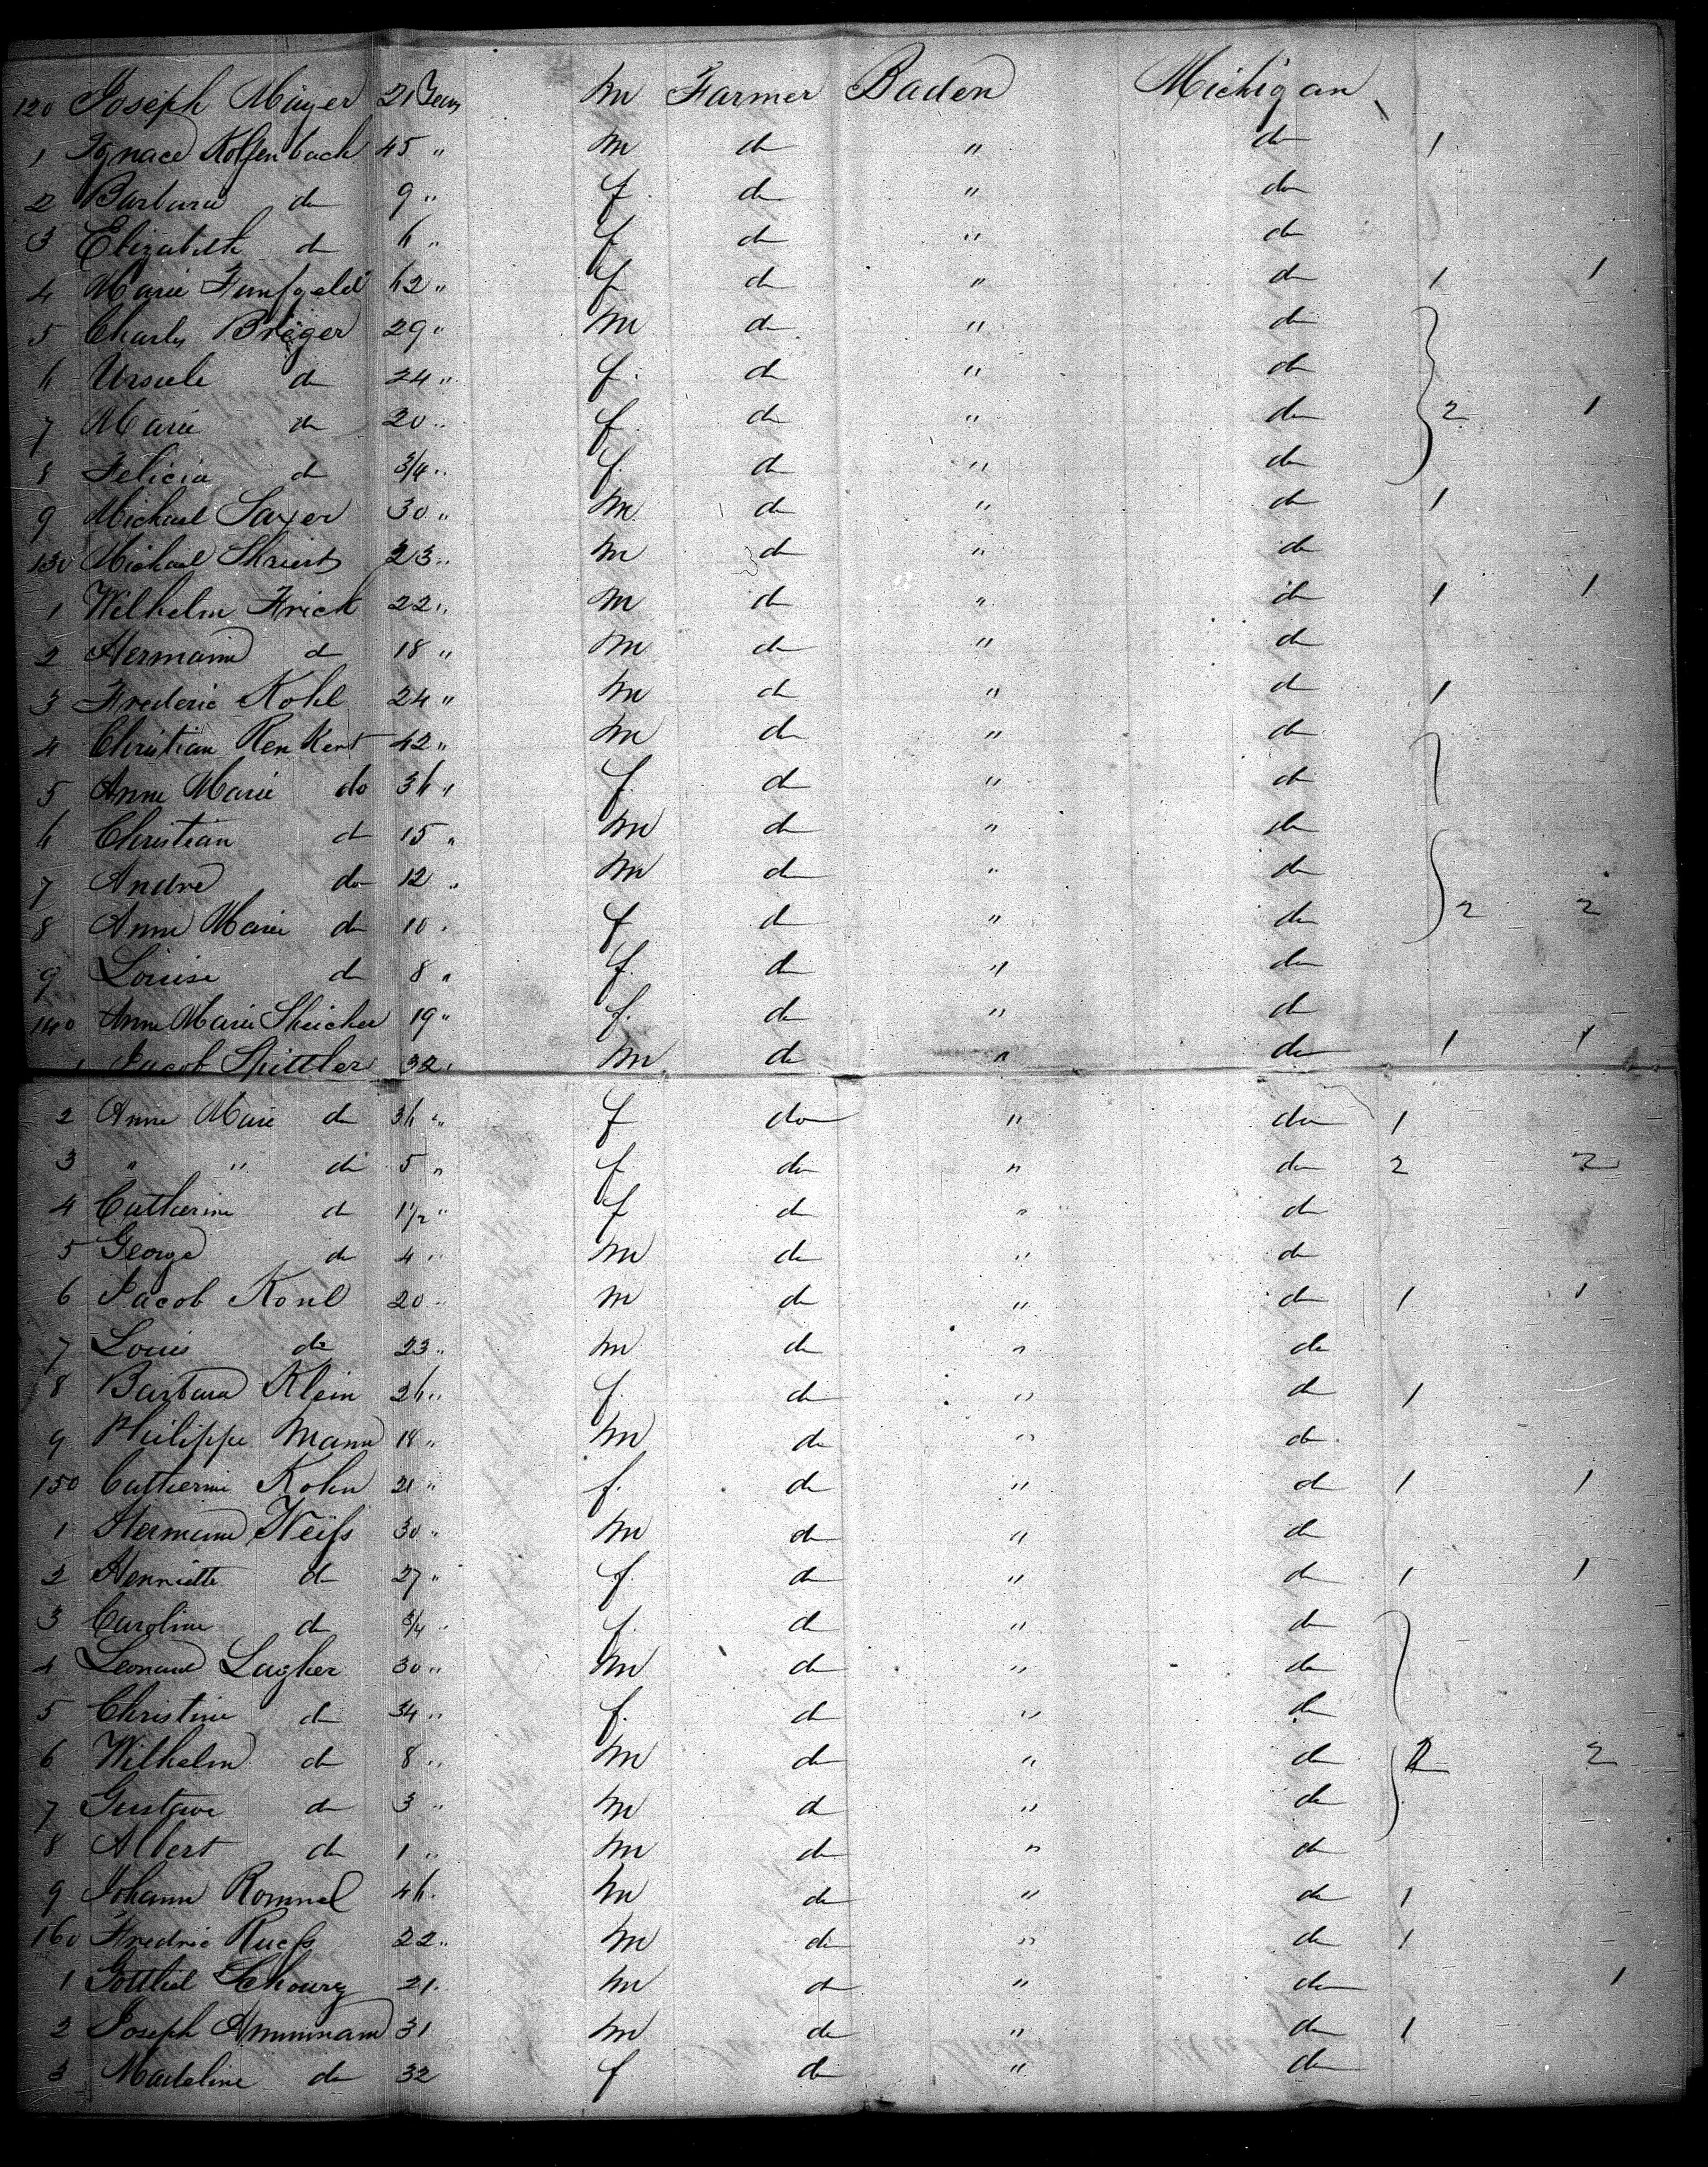 120 Joseph Mayer 21 Years m Farmer Baden Michigan
1 Ignace Kolfenbach 45 " m do " do 1
2 Barbara do 9 " f do " do
3 Elizabeth do 6 " f do " do
4 Marie Funfgeld 62 " f do " do 1 1
5 Charles Breger 29 " m do " do
6 Ursule do 24 " f do " do
7 Marie do 20 " f do " do 2 1
8 Felicia do 3/4 " f do " do
9 Michael Saxer 30 " m do " do 1
130 Michael 23 " m do " do
1 Wilhelm Frick 22 " m do " do 1 1
2 Hermann do 18 " m do " do
3 Frederic Kohl 24 " m do " do 1
4 Christian Renkert 42 " m do " do
5 Anne Marie do 36 " f do " do
6 Christian do 15 " m do " do
7 Andre do 12 " m do " do
8 Anne Marie do 10 " f do " do 2 2
9 Louise do 8 " f do " do
140 Anne Marie 19 " f do " do
1 Jacob Spittler 32 " m do " do 1 1
2 Anne Marie do 36 " f do " do 1
3 " " do 5 " f do " do 2 2
4 Catherine do 1 1/2 " f do " do
5 George do 4 " m do " do
6 Jacob 20 " m do " do 1 1
7 Louis do 23 " m do " do
8 Barbara Klein 26 " f do " do 1
9 Philippe Mann 18 " m do " do
150 Catherine Kohn 21 " f do " do 1 1
1 Hermann Weiss 30 " m do " do
2 Henriette do 27 " f do " do 1 1
3 Caroline do 3/4 " f do " do
4 Leonard 30 " m do " do
5 Christine do 34 " f do " do
6 Wilhelm do 8 " m do " do 2 2
7 Gustave do 3 " m do " do
8 Albert do 1 " m do " do
9 Johann Rommel 46 m do " do 1
160 Fredric Ruess 22 " m do " do 1
1 Gottlieb 21 m do " do 1
2 Joseph 31 m do " do 1
3 Madeline do 32 f do " do